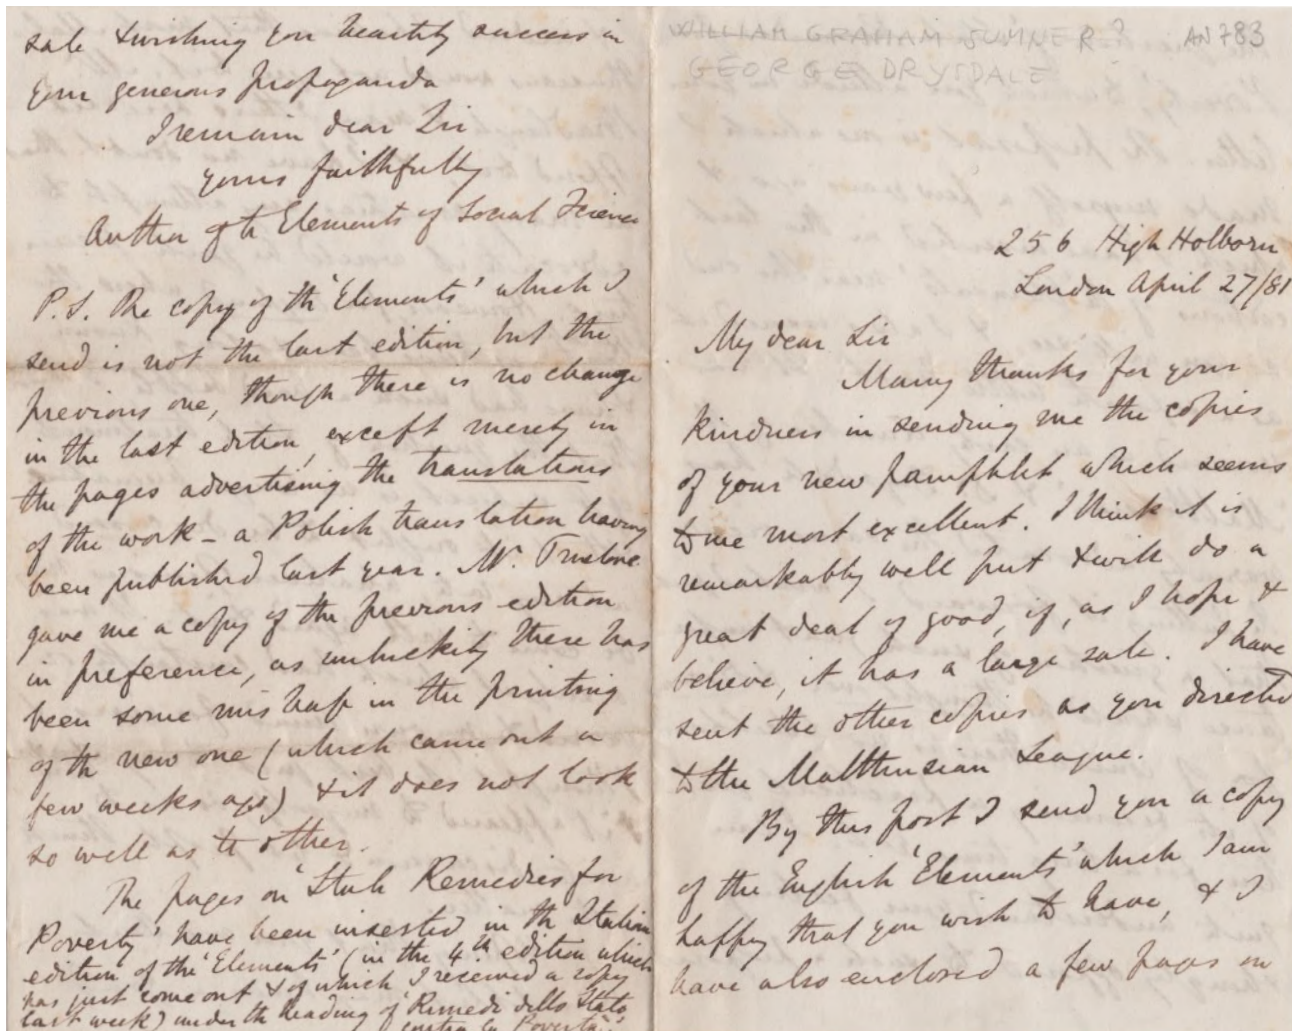 sale & wishing you heartily success in
your generous propaganda
I remain dear Sir
yours faithfully
Author of th Elements of Social Science
P.S. The copy of th 'Elements' which I
send is not the last edition, but the
previous one, though there is no change
in the last edition, except merely in
the pages advertising the translations
of the work – a Polish translation having
been published last year. Mr. Truelove
gave me a copy of the previous edition
in preference, as unluckily there has
been some mishap in the printing
of th new one (which came out a
few weeks ago) & it does not look
so well as th other.
The pages on 'State Remedies for
Poverty' have been inserted in th Italian
edition of the 'Elements' (in the 4th edition which
has just come out & of which I received a copy
last week) under th heading of 'Remedi dello Stato
contro la Povertà'.
WILLIAM GRAHAM SUMNER?
AN 783
GEORGE DRYSDALE
256 High Holborn
London April 27/81
My dear Sir
Many thanks for your
kindness in sending me the copies
of your new pamphlet which seems
to me most excellent. I think it is
remarkably well put & will do a
great deal of good, if, as I hope &
believe, it has a large sale. I have
sent the other copies as you directed
to the Malthusian League.
By this post I send you a copy
of the English 'Elements' which I am
happy that you wish to have, & I
have also enclosed a few pages on